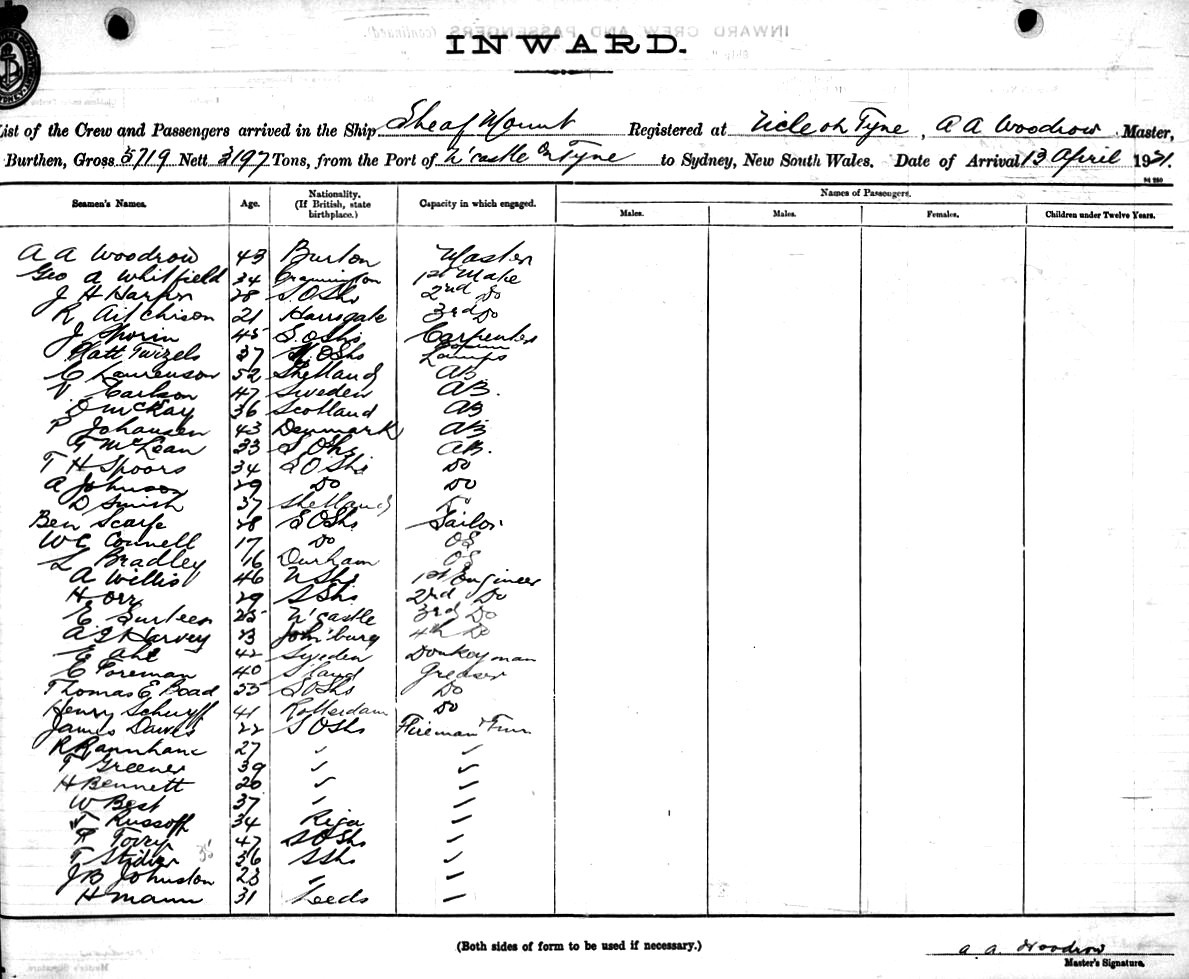 INWARD.
List of the Crew and Passengers arrived in the Ship Sheaf Mount Registered at N'cle on Tyne, A A Woodrow Master,
Burthen, Gross 5719 Nett 3197 Tons, from the Port of N'castle On Tyne to Sydney, New South Wales. Date of Arrival 13 April 1921.
Seamen's Names. Age. Nationality. (If British, state birthplace.) Capacity in which engaged. Names of Passengers.
Males. Males. Females. Children under Twelve Years.
A A Woodrow 43 Burton Master
Geo A Whitfield 34 Cramlington 1st Mate
J H Harper 28 S.OShs 2nd Do
R Aitchison 21 Harrogate 3rd Do
J 45 S.OShs Carpenter
Matt Twizels 37 N.OShs Lamps
C Laurenson 52 Shetland AB
V Carlson 47 Sweden AB.
D McKay 36 Scotland AB
P Johansen 43 Denmark AB
T McLean 33 S OShs AB.
T H Spoors 34 S OShs Do
A Johnson 29 Do Do
D Smith 37 Shetland Do
Ben Scarfe 28 S OShs Sailor
W C Connell 17 Do OS
L Bradley 16 Durham OS
A Willis 46 N Shs 1st Engineer
H Orr 29 S Shs 2nd Do
E Surtees 25 N'castle 3rd Do
A J Harvey 23 Joh'burg 4th Do
E Ahl 42 Sweden Donkeyman
C Foreman 40 S'land Greaser
Thomas E Boad 55 S OShs Do
Henry Schuyff 41 Rotterdam Do
James Dawes 22 S OShs Fireman + Trim
R 27 ✓ ✓
T Greener 39 ✓ ✓
H Bennett 20 ✓ ✓
W Best 37 ✓ ✓
Russoff 34 Riga ✓
R Tovey 47 S OShs ✓
T 36 S Shs ✓
J B Johnston 23 ✓ ✓
H Mann 31 Leeds ✓
(Both sides of form to be used if necessary.)
A. A. Woodrow
Master's Signature.